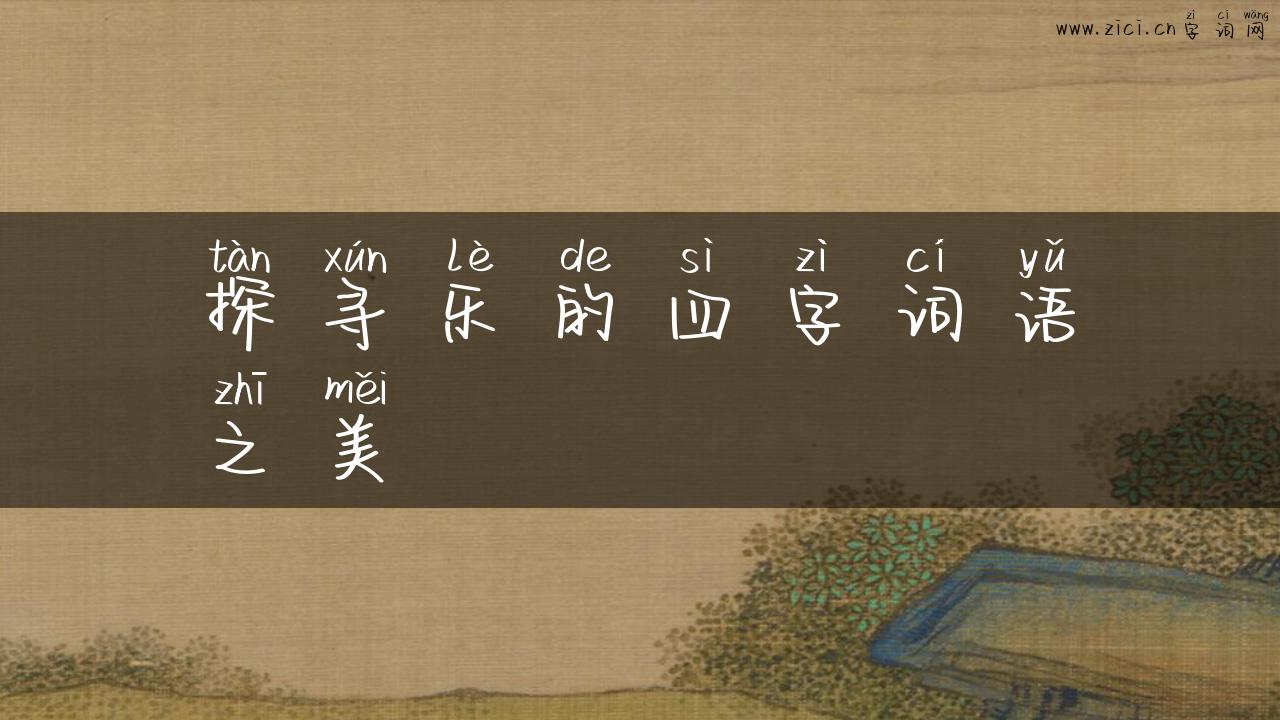 zì cí wǎng
www.zici.cn字词网
tàn xún lè de sì zì cí yǔ
探寻乐的四字词语
zhī měi
之美